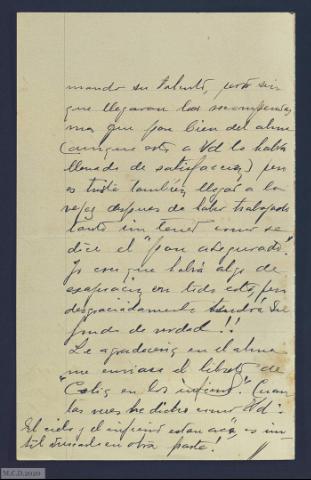 mando su talento, pero sin
que llegaran las recompensas
mas que para bien del alma
(aunque esto a Vd lo habrá
llenado de satisfacción) pero
es triste también llegar a la
vejez despues de haber trabajado
tanto sin tener como se
dice el "pan asegurado".
Yo creo que habrá algo de
exageración en todo esto, pero
desgraciadamente tendrá su
fondo de verdad!!
Le agradecería en el alma
me enviase el libreto de
en los infiernos". Cuan
tas veces he dicho como Vd:
El cielo y el infierno estan acá, es inu
til buscarlo en otra parte!
M.C.D.2020